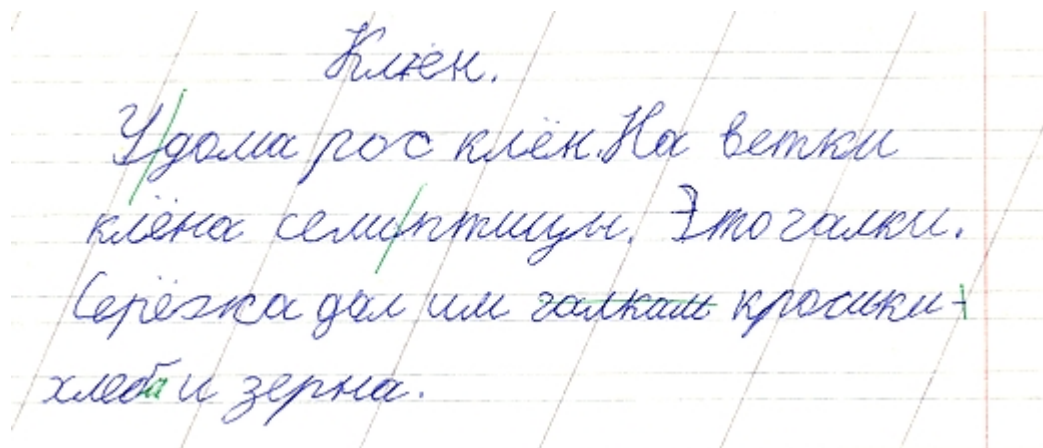 Клён.
У дома рос клён. На ветки
клёна сели птицы. Это галки.
Серёжа дал им галкам крошки
хлеба и зерна.